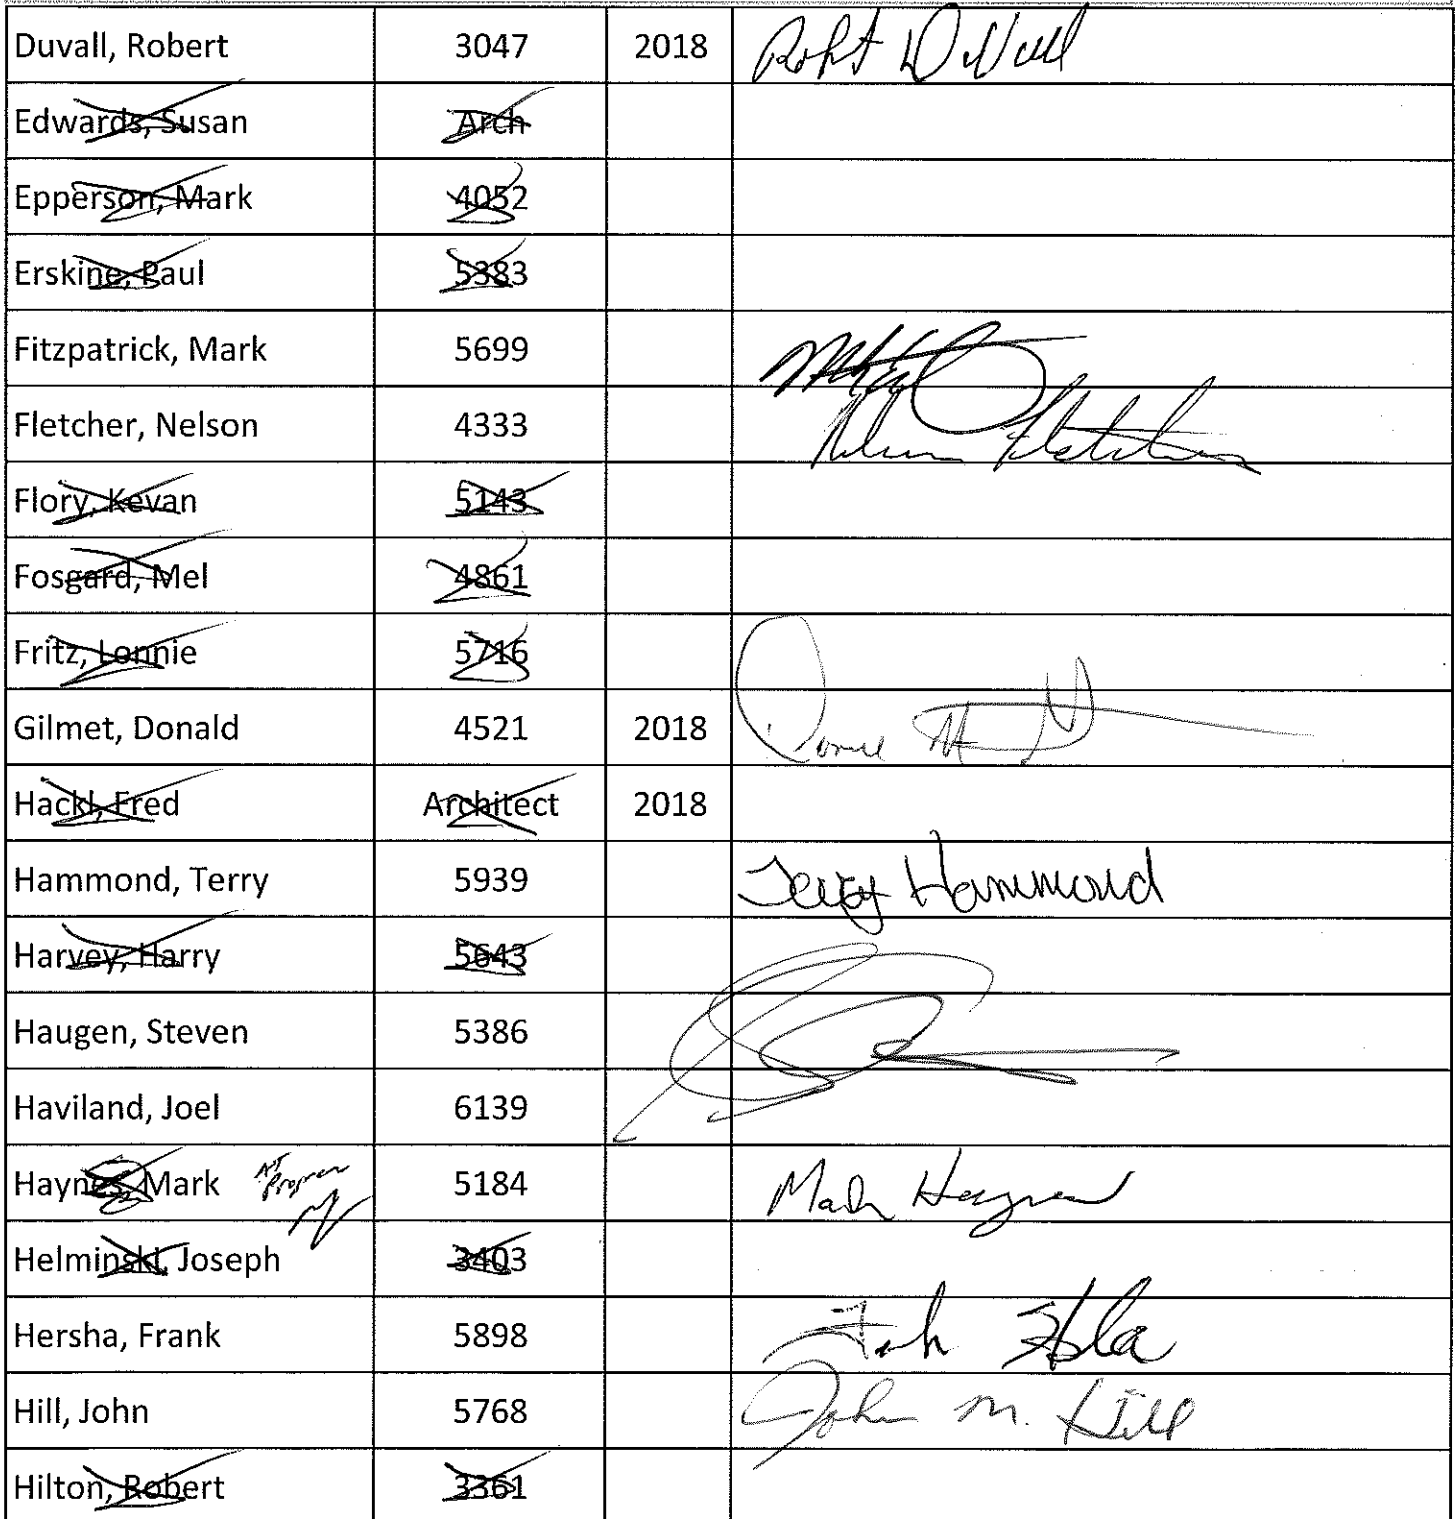 Duvall, Robert 3047 2018 Robt Duvall
Edwards, Susan Arch
Epperson, Mark 4052
Erskine, Paul 5383
Fitzpatrick, Mark 5699
Fletcher, Nelson 4333 Nelson Fletcher
Flory, Kevan 5143
Fosgard, Mel 4861
Fritz, Lonnie 5716
Gilmet, Donald 4521 2018
Hackl, Fred Architect 2018
Hammond, Terry 5939 Terry Hammond
Harvey, Harry 5643
Haugen, Steven 5386
Haviland, Joel 6139
Haynes, Mark 5184 Mark Haynes
Helminski, Joseph 3403
Hersha, Frank 5898
Hill, John 5768 John M. Hill
Hilton, Robert 3361